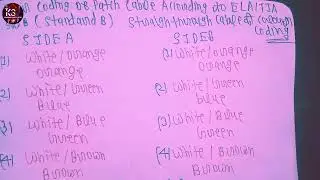 Coding OF Patch Cable According to EIA/TIA
B (Standard B) Straight through Cable
Coding
SIDE A SIDE B
(1) White / Orange (1) White / Orange
Orange Orange
(2) White / Green (2) White / Green
Blue Blue
(3) White / Blue (3) White / Blue
Green Green
(4) White / Brown (4) White / Brown
Brown Brown